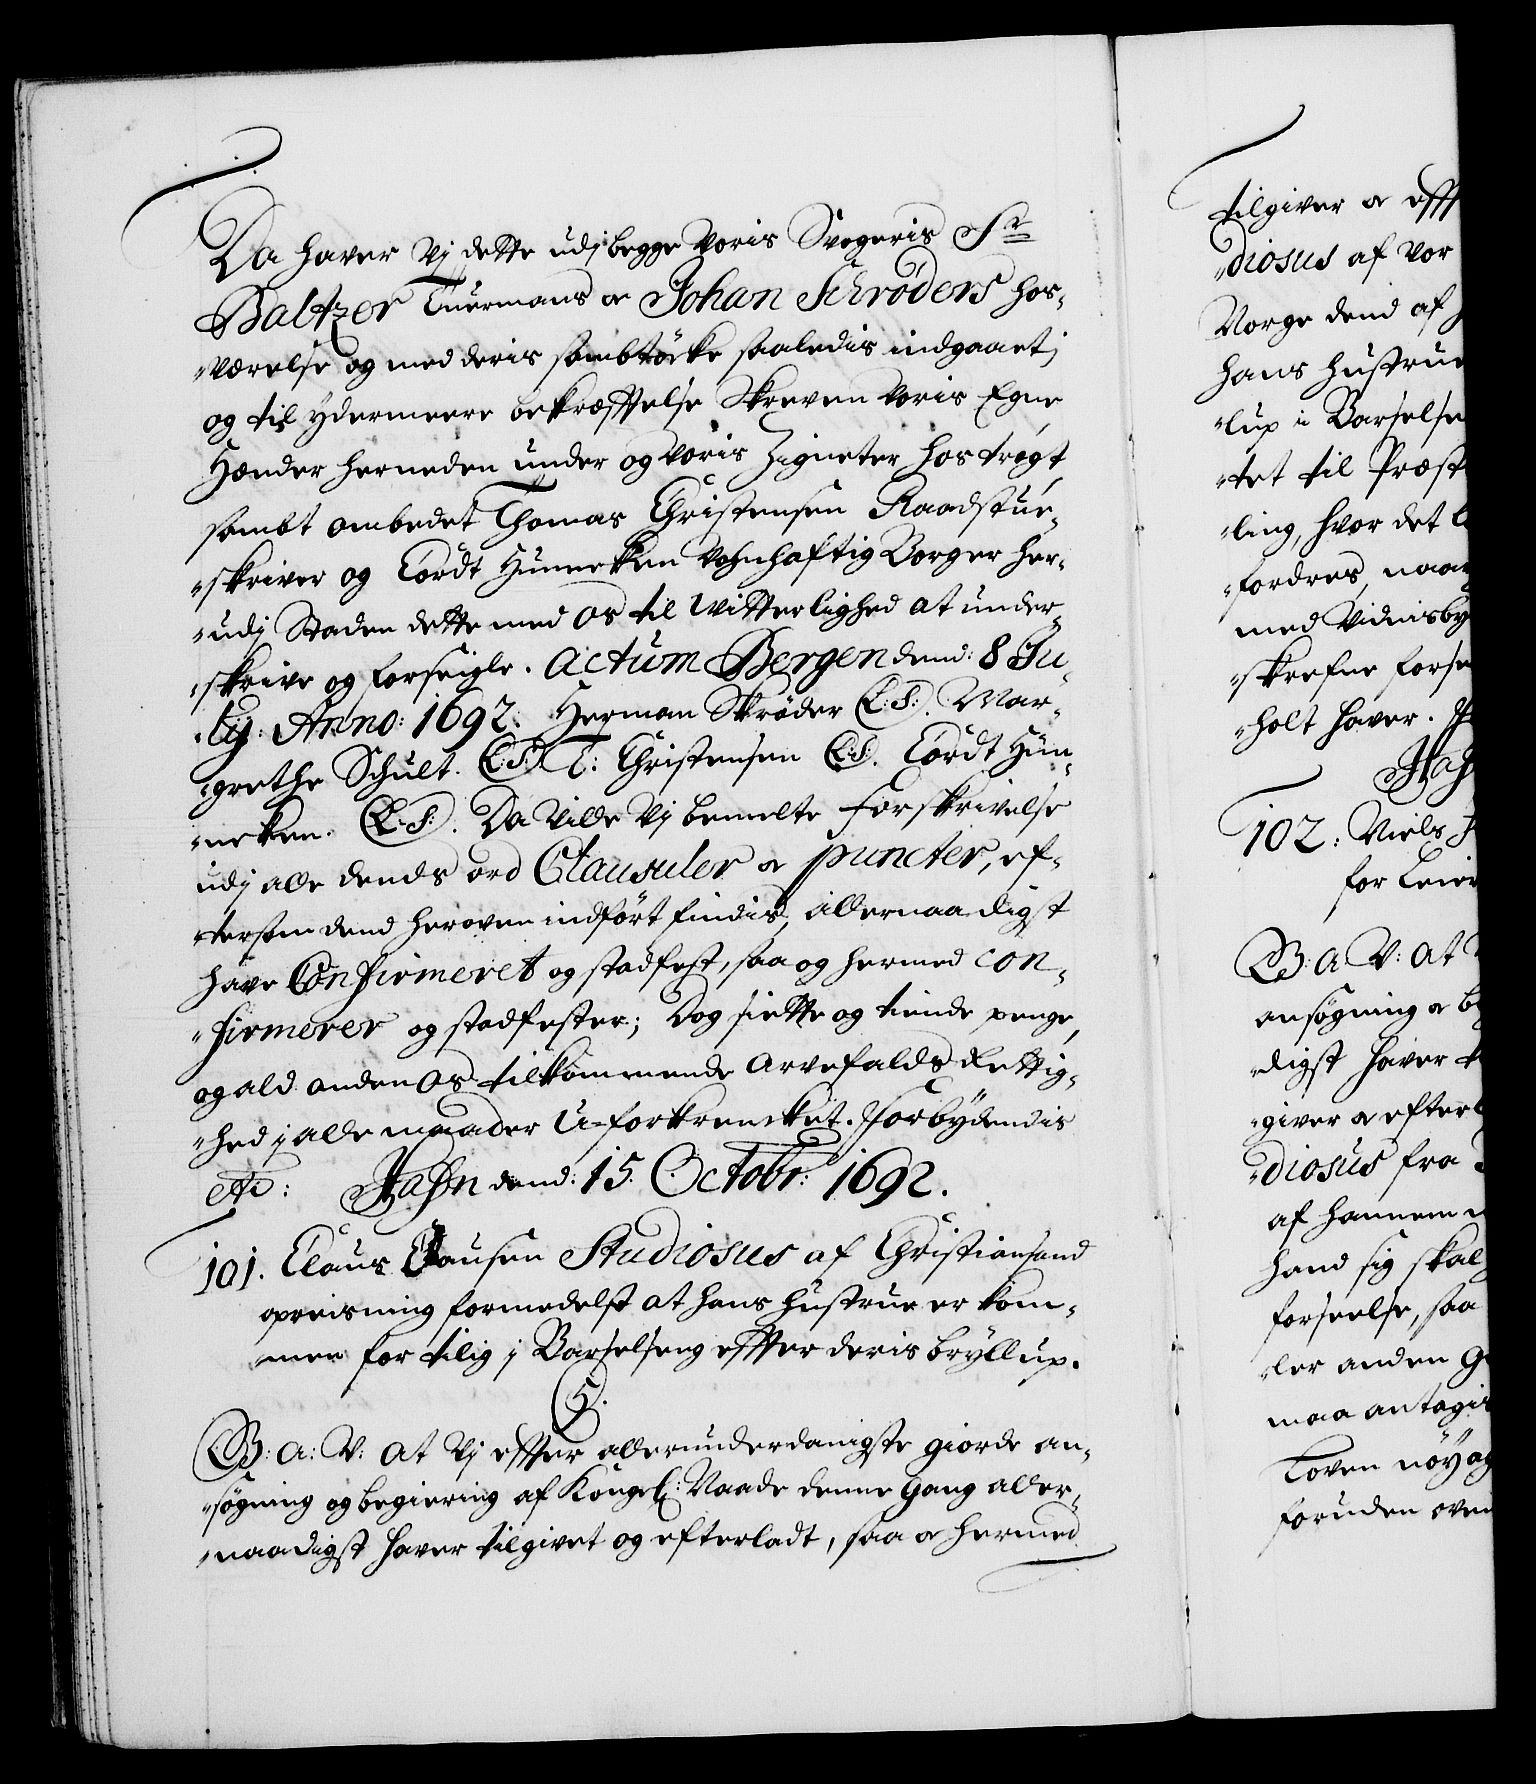 Da haver Vj dette udj begge Voris Svogeris Sr
Baltzer Tuermans og Johan Schrøders hos-
værelse og med deris sambtÿcke saaledis indgaaet,
og til ÿdermeere bekræfftelse Skreven Voris Egne
Hænder herneden under og Voris Zigneter hostrÿgt
sambt ombedet Thomas Christensen Raadstue-
skriver og Cordt Hünneken Vohnhafftig Borger her-
udj Staden dette med os til Witterlighed at under-
skrive og forseigle. Actum Bergen dend: 8 Ju-
lij. Anno: 1692. Herman Skrøder (L:S:). Mar-
grethe Schult. (L:S:) T: Christensen (L:S). Cordt Hün-
neken. (L:S:). Da Ville Vj bemelte forskrivelse
udj alle dends ord Clausuler og puncter, ef-
tersom dend heroven indført findis, allernaadigst
have Confirmeret og stadfest, saa og hermed con-
firmerer og stadfester; Dog siette og tiende penge,
og ald anden Os tilkommende Arvefalds Rettig-
hed j alle maader U-forkrencket. Forbÿdendis
etc: Hafn dend: 15. Octobr: 1692.
101. Claus Clausen Studiosus af Christiansand
opreisning formedelst at hans hustrue er kom-
men for tilig j Barselseng effter deris brÿllup.
G. A: V: At Vj effter allerunderdanigste giorde an-
søgning og begiering af Kongel: Naade denne Gang aller-
naadigst haver tilgivet og efterladt, saa og hermed
tilgiver og efft
diosus af vor
Norge dend af
hans hustrue
lup i Barselse
tet til Præst
ling, hvor det
fordres, naar
med Vidnisby
skrefne forse
holt haver.
Haf
102: Niels
for Leier
G: A V: At
ansøgning og
digst haver
giver og efter
diosus fra
af hannem
hand sig skal
forseelse, saa
ler anden
maa antagis
Loven nøÿag
foruden oven